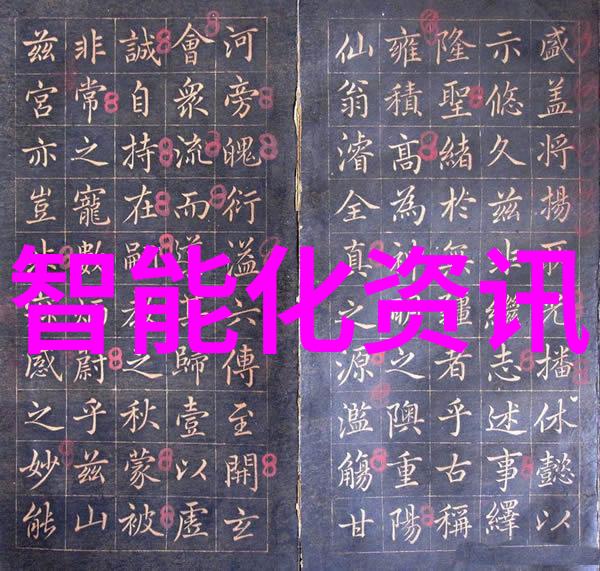 盛盖将揚光播休懿以
示悠久兹非繼志述事繹
隆聖緒於無疆者乎古稱
雍積高為神明之隩重陽
仙翁濬全真之源濫觴甘
河旁魄衍溢六傳至開玄
會衆流而其歸壹以虚
誠自持在嗣之秋蒙被
非常之寵數炳蔚乎兹山
兹宮亦豈感之妙能
智能化资讯